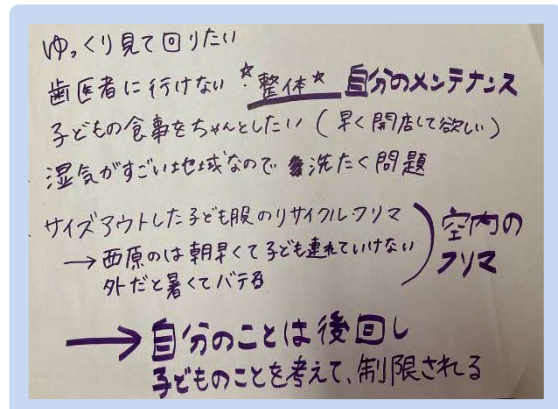 ゆっくり見て回りたい
歯医者に行けない・☆整体☆ 自分のメンテナンス
子どもの食事をちゃんとしたい(早く開店して欲しい)
湿気がすごい地域なので 洗たく問題
サイズアウトした子ども服のリサイクル・フリマ
→西原のは朝早くて子ども連れていけない
外だと暑くてバテる
空内の
フリマ
→自分のことは後回し
子どものことを考えて、制限される